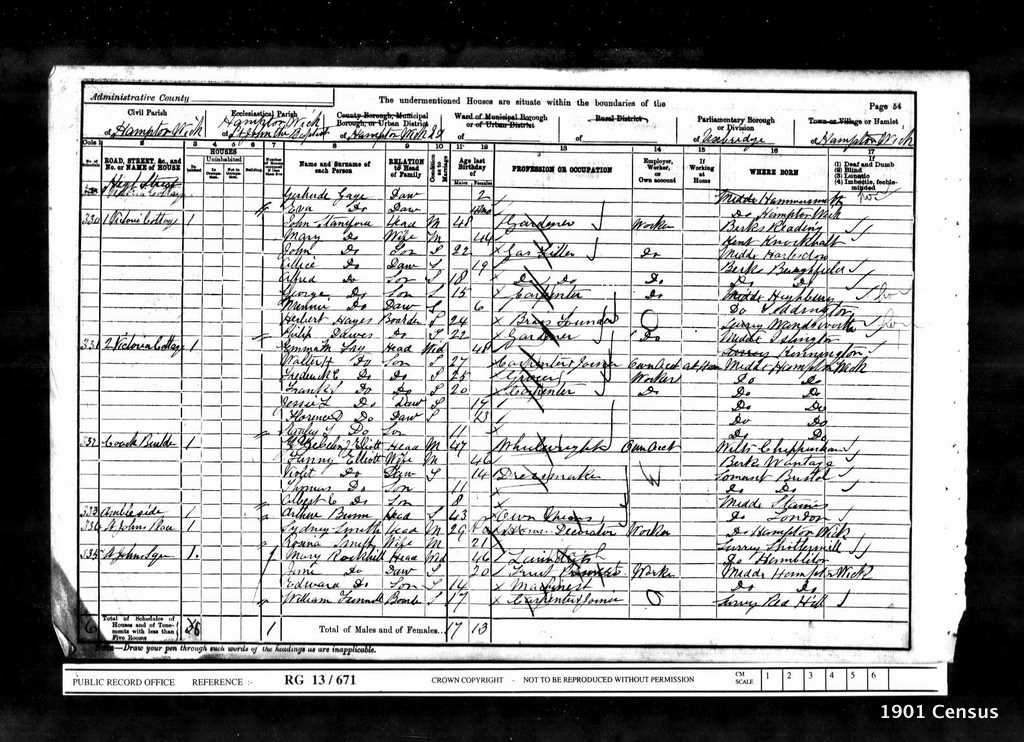 Administrative County
The undermentioned Houses are situate within the boundaries of the
Page 54
Civil Parish
of Hampton Wick
Ecclesiastical Parish
of Hampton Wick St John the Baptist
County Borough, Municipal Borough, or Urban District
of Hampton Wick
Ward of Municipal Borough or of Urban District
of
Rural District
of
Parliamentary Borough or Division
of Uxbridge
Town or Village or Hamlet
of Hampton Wick
Cols 1 2 3 4 5 6 7 8 9 10 11 12 13 14 15 16 17
HOUSES
ROAD, STREET, &c., and No. or NAME of HOUSE
Inhabited
Uninhabited
Building
Name and Surname of each Person
RELATION to Head of Family
Condition as to Marriage
Age last Birthday of
Males Females
PROFESSION OR OCCUPATION
Employer, Worker, or Own account
If Working at Home
WHERE BORN
If (1) Deaf and Dumb (2) Blind (3) Lunatic (4) Imbecile, feeble-minded
High Street
Gertrude Daw 2 Middx Hammersmith
Eva Do Daw Do Hampton Wick
330 1 Victoria Cottage 1 John Head M 48 Gardener Worker Berks Reading
Mary Do Wife M 44 Kent Knockholt
John Do Son S 22 Gas Fitter Do Middx
Alice Do Daw S 19 Berks Burghfield
Alfred Do Son S 18 Do Do Do Do Do
George Do Son S 15 Carpenter Do Middx Highbury
Minnie Do Daw S 6 Do Teddington
Herbert Hayes Boarder S 24 Brass Founder Surrey Wandsworth
Do S 22 Gardener Do Middx Islington
331 2 Victoria Cottage 1 Emma M Head Wid 48 Kennington
Walter H Do Son S 27 Carpenter & Joiner Own Acct at Home Middx Hampton Wick
Frederick C Do Do S 25 Grocer Worker Do Do
Frank Do Do S 20 Carpenter Do Do Do
Jessie L Do Daw S 17 Do Do
Florence Do Daw S 13 Do Do
Do Son 11 Do Do
332 Coach Builder 1 Elliott Head M 47 Wheelwright Own Acct Wilts Chippenham
Fanny Elliott Wife M 46 Berks Wantage
Violet Do Daw S 14 Dressmaker Somerset Bristol
Thomas Do Son 11 Do Do
Albert E Do Son 8 Middx Staines
333 Ambleside 1 Arthur Head S 43 Own Means Do London
334 St Johns 1 Sydney Smith Head M 29 House Decorator Worker Do Hampton Wick
Rosina Smith Wife M 21 Surrey Shottermill
335 St Johns 1 Mary Head Wd 46 Laundress Do Hambledon
Jane Do Daw S 20 Worker Middx Hampton Wick
Edward Do Son S 14 Machinist Do Do
William Boarder S 17 Carpenter & Joiner Surrey Red Hill
6
Total of Schedules of Houses and of Tenements with less than Five Rooms
1
Total of Males and of Females 17 13
Note—Draw your pen through such words of the headings as are inapplicable.
PUBLIC RECORD OFFICE REFERENCE :- RG 13/671 CROWN COPYRIGHT - NOT TO BE REPRODUCED WITHOUT PERMISSION CM SCALE 1 2 3 4 5 6
1901 Census